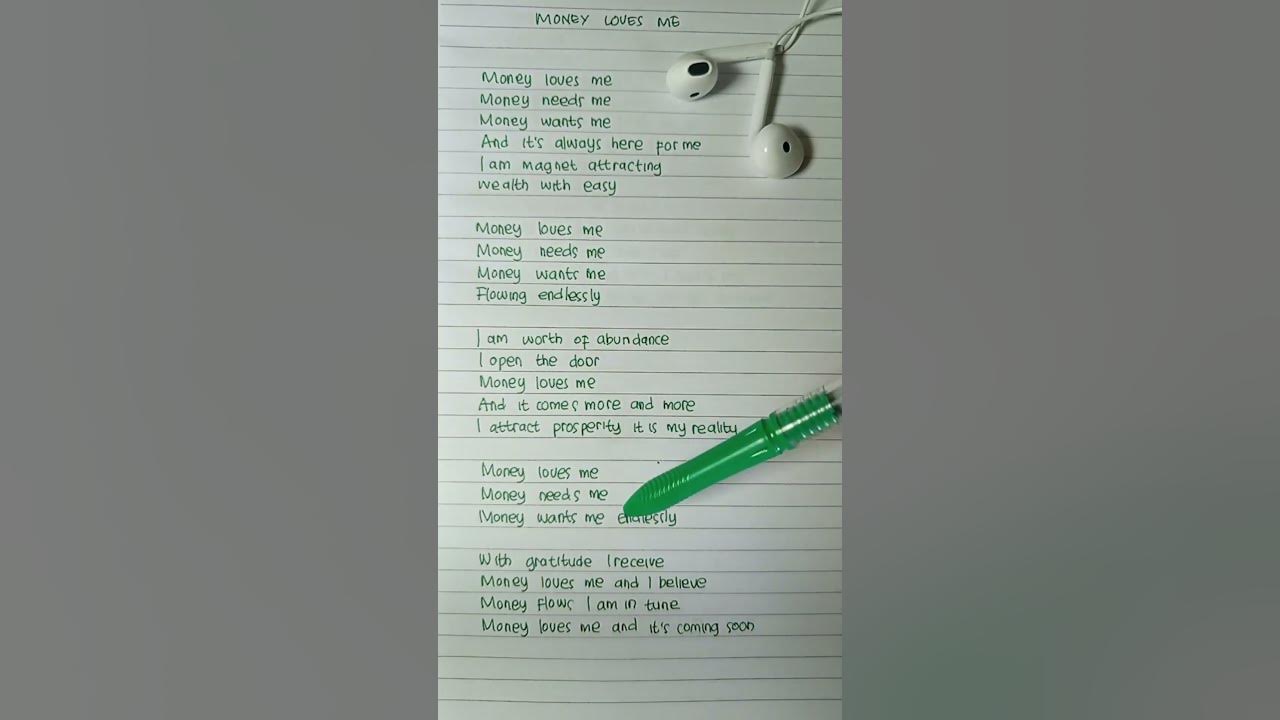 MONEY LOVES ME
Money loves me
Money needs me
Money wants me
And it's always here for me
I am magnet attracting
wealth with easy
Money loves me
Money needs me
Money wants me
Flowing endlessly
I am worth of abundance
I open the door
Money loves me
And it comes more and more
I attract prosperity it is my reality
Money loves me
Money needs me
Money wants me endlessly
With gratitude I receive
Money loves me and I believe
Money flows I am in tune
Money loves me and it's coming soon